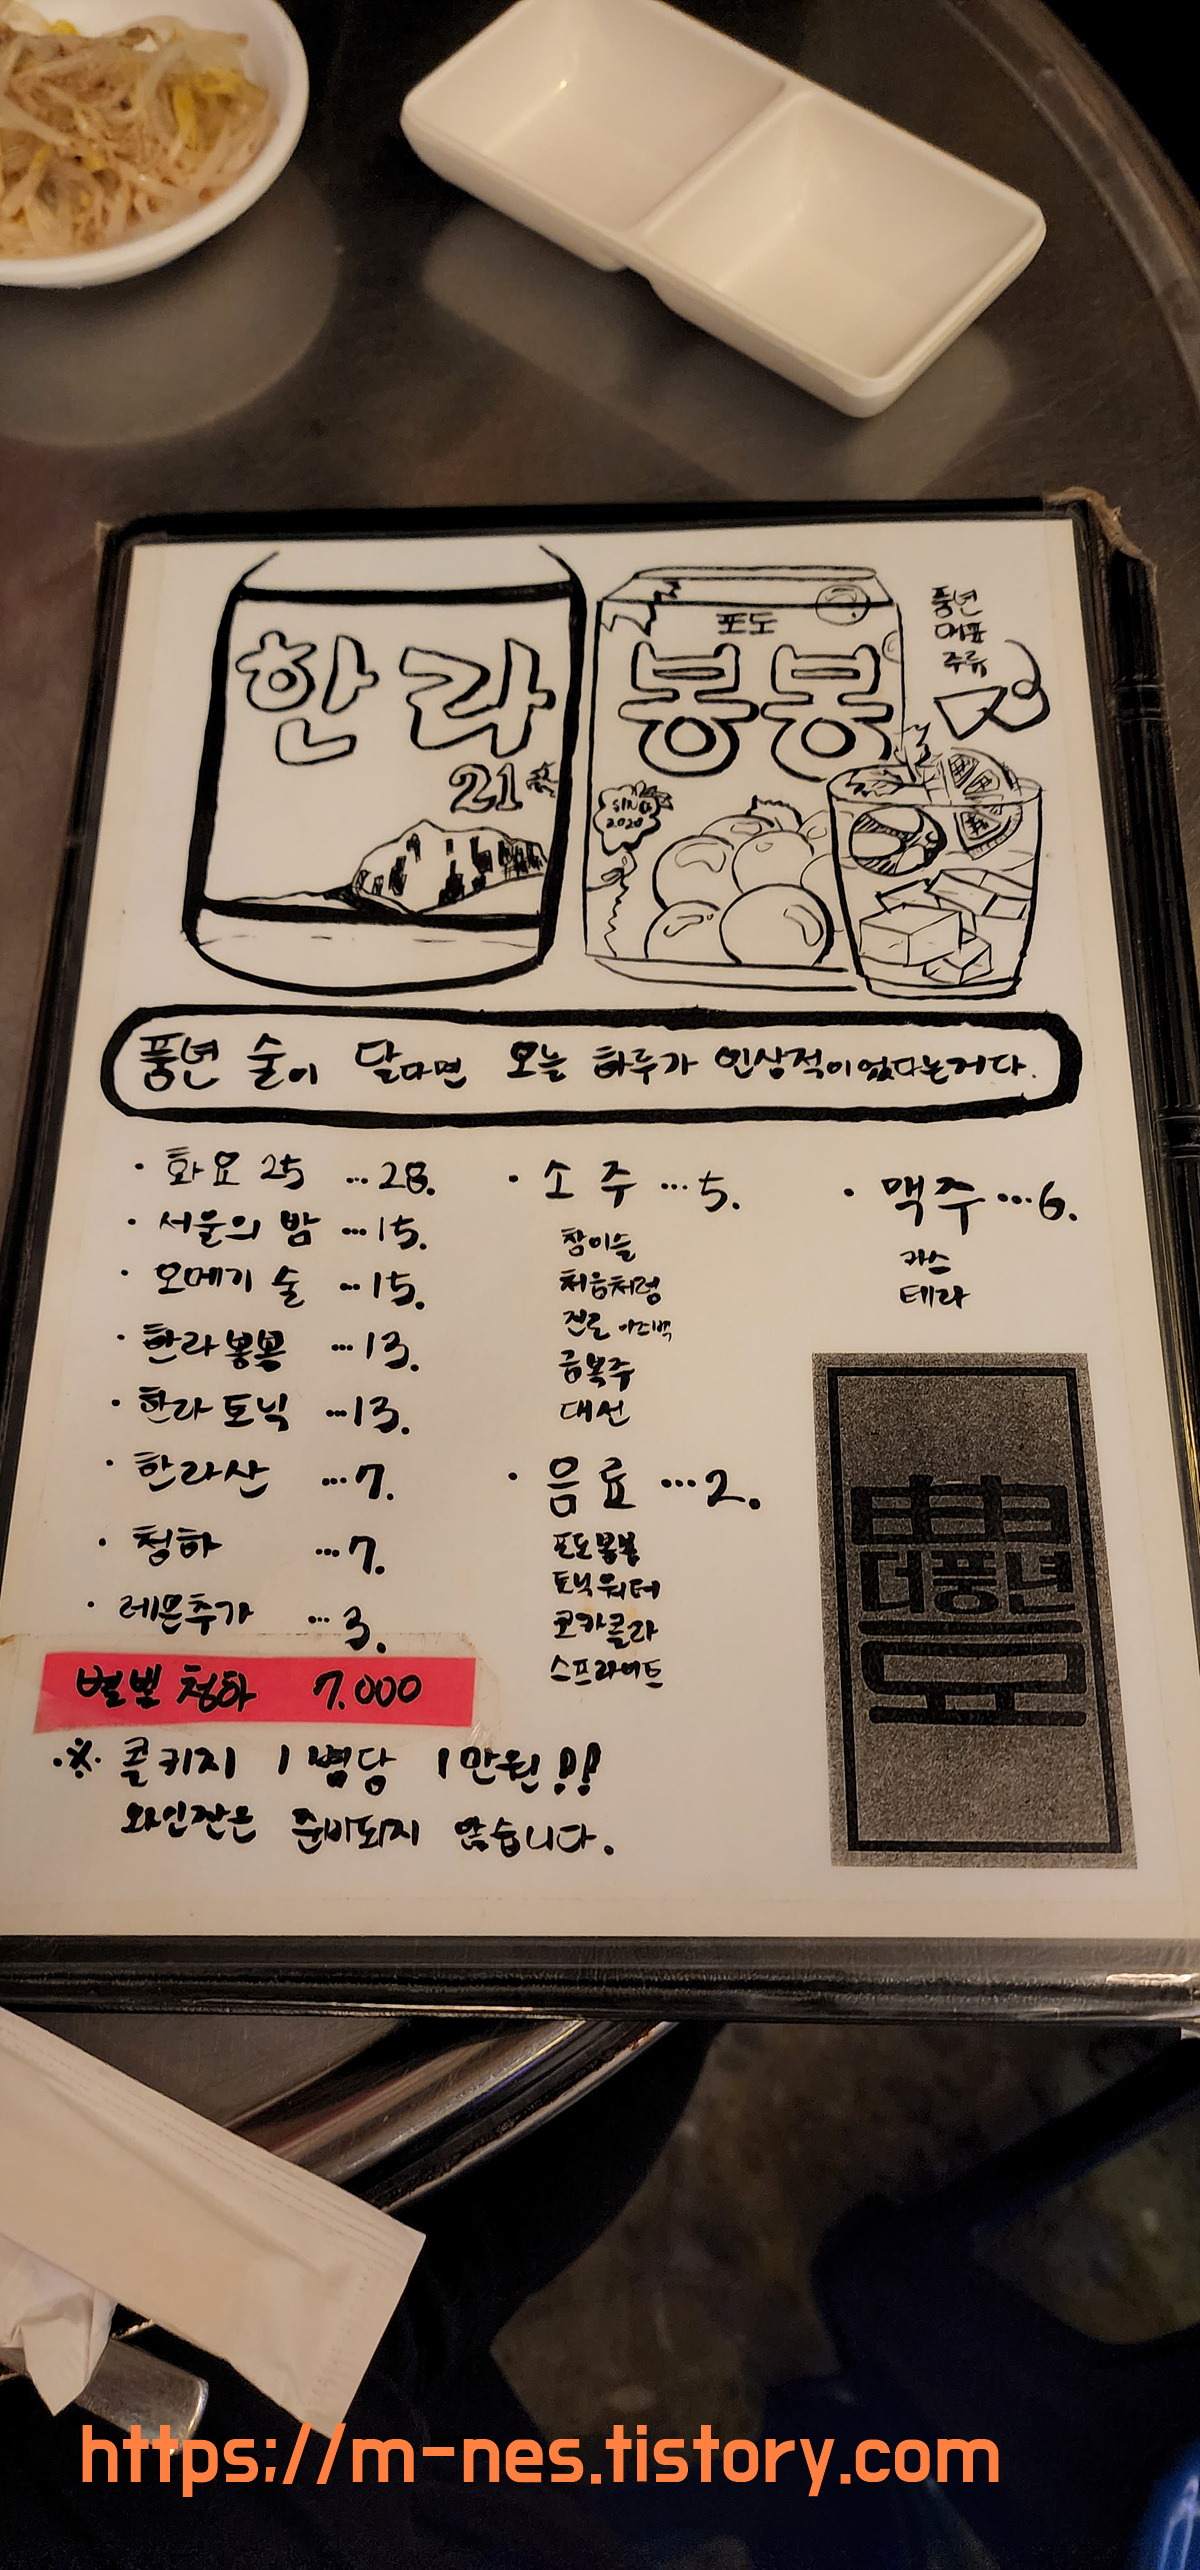 한라
21
포도
봉봉
SINCE
2020
풍년
대표
주류
풍년 술이 달다면 오늘 하루가 인상적이었다는거다.
· 화요 25 ...28.
· 서울의 밤 ...15.
· 오메기 술 ...15.
· 한라봉봉 ...13.
· 한라토닉 ...13.
· 한라산 ...7.
· 청하 ...7.
· 레몬추가 ...3.
별빛 청하 7.000
· 소주 ...5.
참이슬
처음처럼
진로 이즈백
금복주
대선
· 음료 ...2.
포도봉봉
토닉워터
코카콜라
스프라이트
· 맥주 ...6.
카스
테라
더풍년
※ 콜키지 1병당 1만원!!
와인잔은 준비되지 않습니다.
https://m-nes.tistory.com